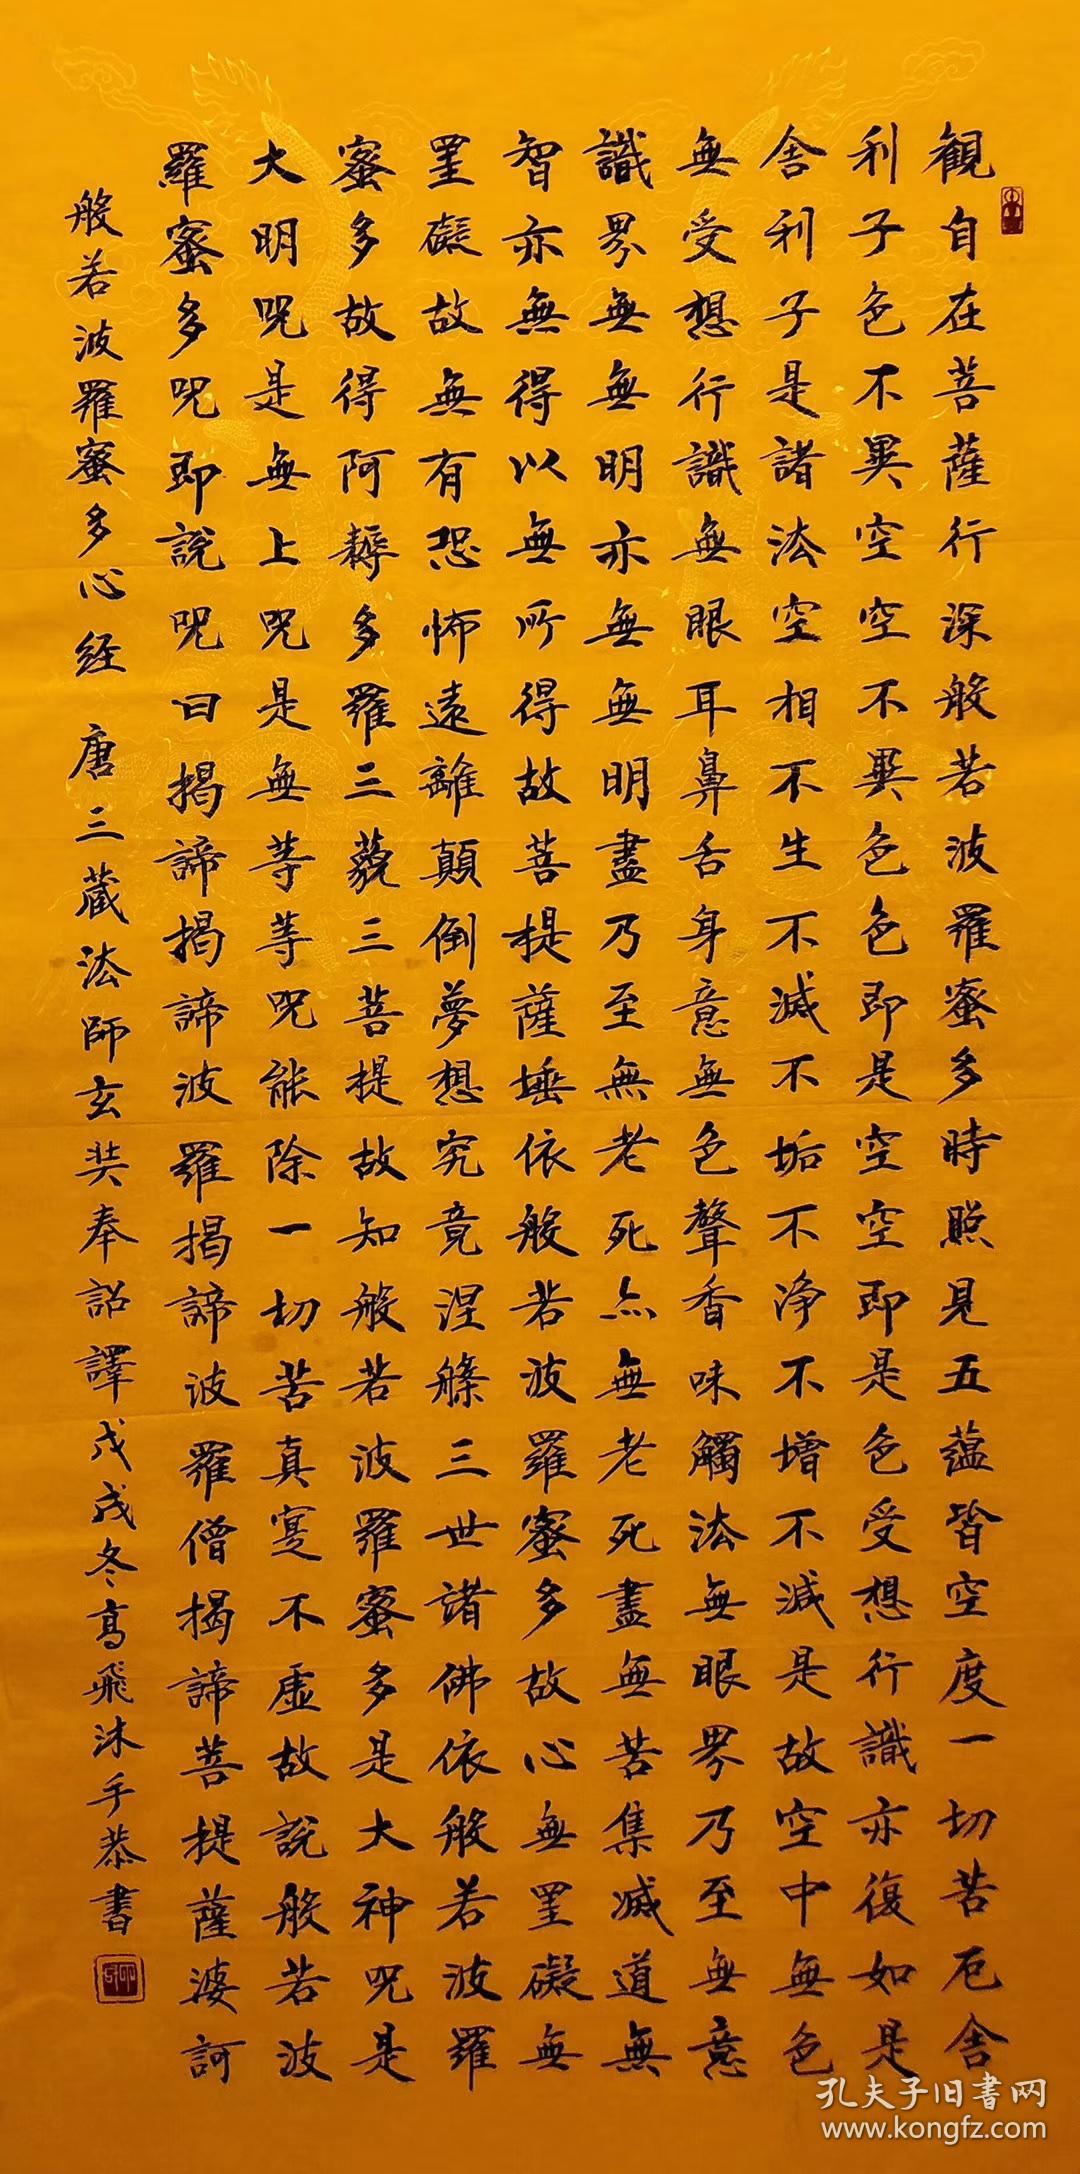 観自在菩薩行深般若波羅蜜多時照見五蘊皆空度一切苦厄舍
利子色不異空空不異色色即是空空即是色受想行識亦復如是
舍利子是諸法空相不生不滅不垢不净不增不減是故空中無色
無受想行識無眼耳鼻舌身意無色聲香味觸法無眼界乃至無意
識界無無明亦無無明盡乃至無老死亦無老死盡無苦集滅道無
智亦無得以無所得故菩提薩埵依般若波羅蜜多故心無罣礙無
罣礙故無有恐怖遠離顛倒夢想究竟涅槃三世諸佛依般若波羅
蜜多故得阿耨多羅三藐三菩提故知般若波羅蜜多是大神咒是
大明咒是無上咒是無等等咒能除一切苦真寔不虛故說般若波
羅蜜多咒即說咒曰揭諦揭諦波羅揭諦波羅僧揭諦菩提薩婆訶
般若波羅蜜多心経 唐三藏法師玄奘奉詔譯戊戌冬高飛沐手恭書
孔夫子旧书网
www.kongfz.com